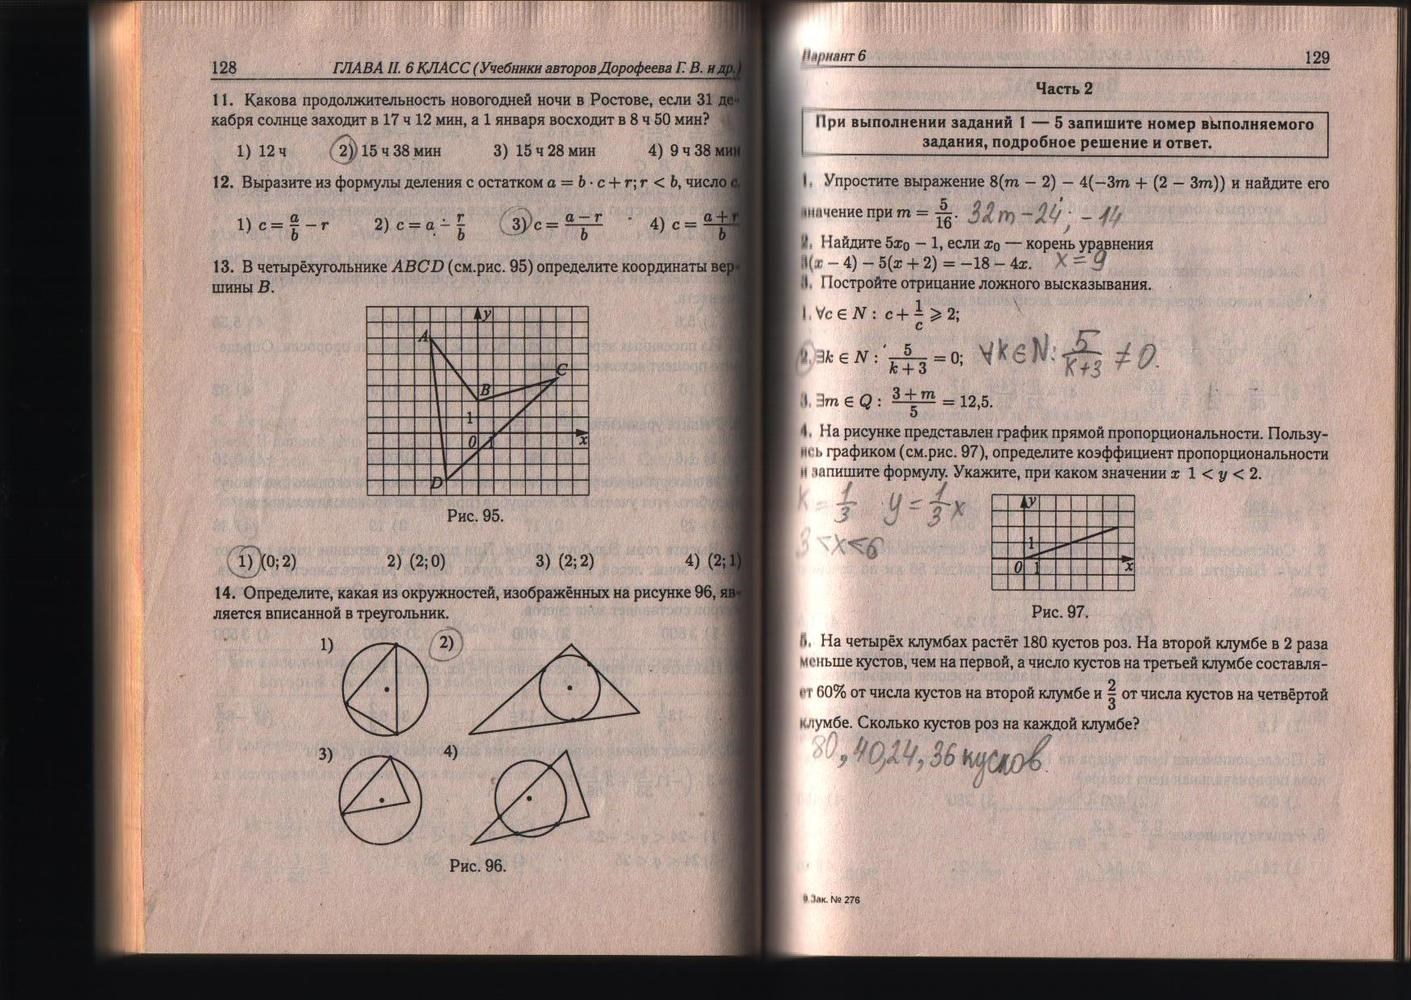 128 ГЛАВА II. 6 КЛАСС (Учебники авторов Дорофеева Г. В. и др.)
11. Какова продолжительность новогодней ночи в Ростове, если 31 де-
кабря солнце заходит в 17 ч 12 мин, а 1 января восходит в 8 ч 50 мин?
1) 12 ч 2) 15 ч 38 мин 3) 15 ч 28 мин 4) 9 ч 38 мин
12. Выразите из формулы деления с остатком a = b · c + r; r < b, число c.
1) c = a/b − r 2) c = a − r/b 3) c = (a − r)/b 4) c = (a + r)/b
13. В четырёхугольнике ABCD (см.рис. 95) определите координаты вер-
шины B.
y
A
C
B
1
0 1 x
D
Рис. 95.
1) (0; 2) 2) (2; 0) 3) (2; 2) 4) (2; 1)
14. Определите, какая из окружностей, изображённых на рисунке 96, яв-
ляется вписанной в треугольник.
1) 2)
3) 4)
Рис. 96.
Вариант 6 129
Часть 2
При выполнении заданий 1 — 5 запишите номер выполняемого
задания, подробное решение и ответ.
1. Упростите выражение 8(m − 2) − 4(−3m + (2 − 3m)) и найдите его
значение при m = 5/16. 32m − 24; − 14
2. Найдите 5x₀ − 1, если x₀ — корень уравнения
3(x − 4) − 5(x + 2) = −18 − 4x. x = 9
3. Постройте отрицание ложного высказывания.
1. ∀c ∈ N : c + 1/c ⩾ 2;
2. ∃k ∈ N : 5/(k + 3) = 0; ∀k∈N: 5/(k+3) ≠ 0.
3. ∃m ∈ Q : (3 + m)/5 = 12,5.
4. На рисунке представлен график прямой пропорциональности. Пользу-
ясь графиком (см.рис. 97), определите коэффициент пропорциональности
и запишите формулу. Укажите, при каком значении x 1 < y < 2.
k = 1/3 y = 1/3 x
3 < x < 6
y
1
0 1 x
Рис. 97.
5. На четырёх клумбах растёт 180 кустов роз. На второй клумбе в 2 раза
меньше кустов, чем на первой, а число кустов на третьей клумбе составля-
ет 60% от числа кустов на второй клумбе и 2/3 от числа кустов на четвёртой
клумбе. Сколько кустов роз на каждой клумбе?
80, 40, 24, 36 кустов.
9 Зак. № 276